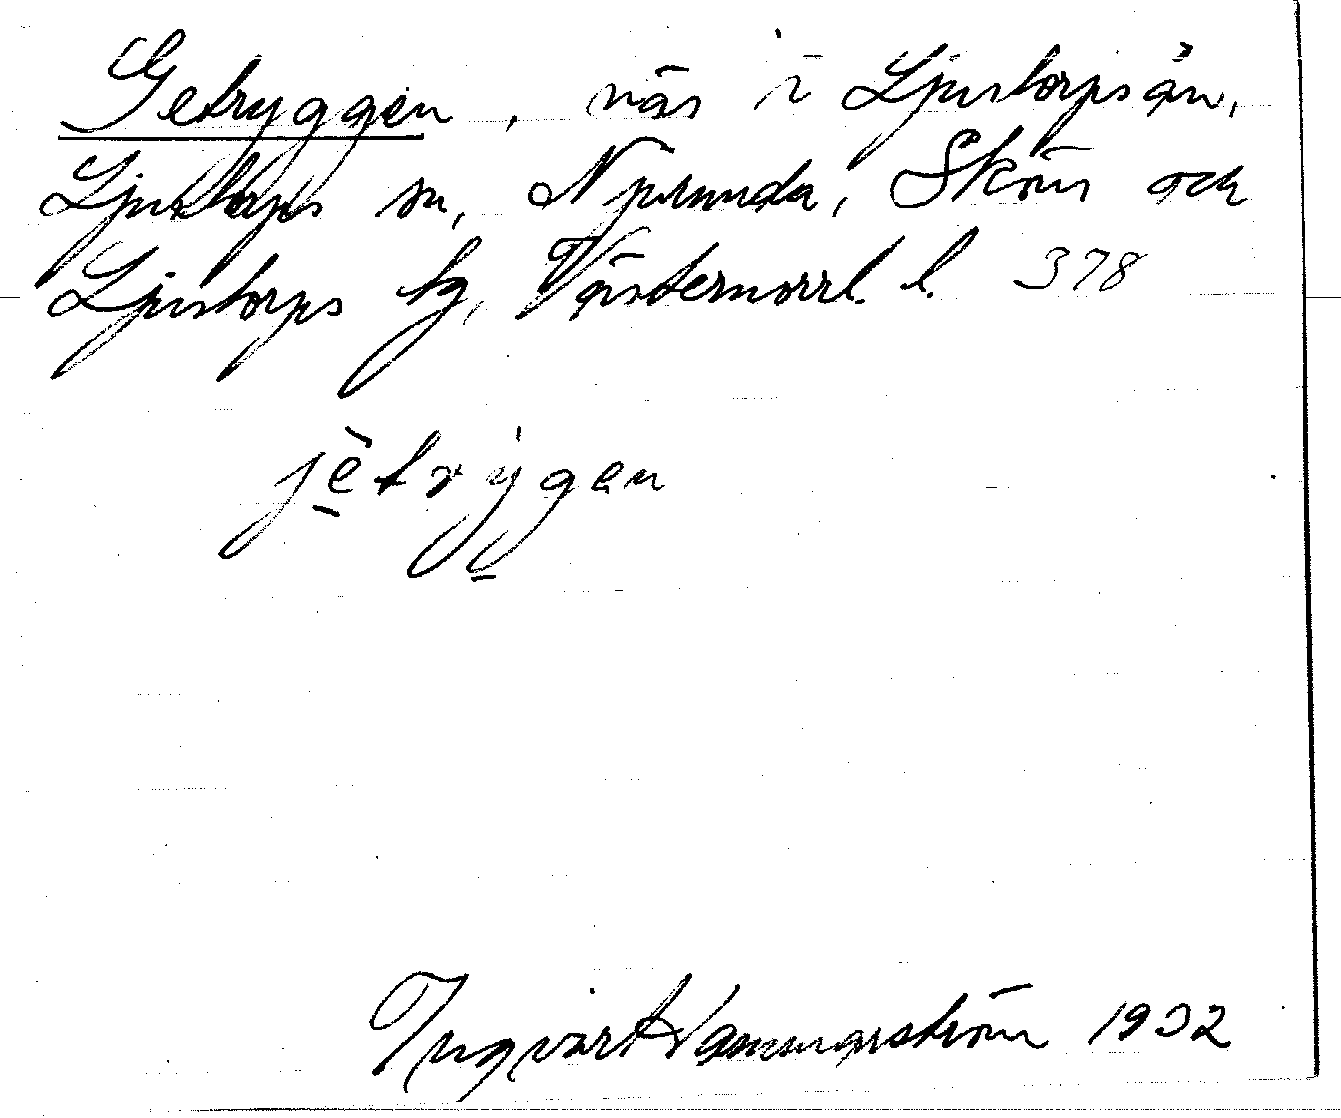 Getryggen, näs i Ljustorpsån,
Ljustorps sn, Njurunda, Sköns och
Ljustorps tg, Västernorrl. l. 378
jètrýgen
Ingvart 1932